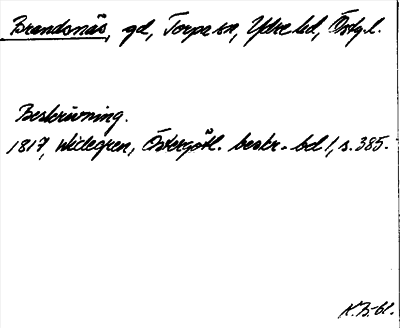 Brandsnäs, gd, Torpa sn, Ydre hd, Östg.l.
Beskrivning.
1817, Widegren, Östergötl. beskr. bd 1, s. 385.
K.B-bl.